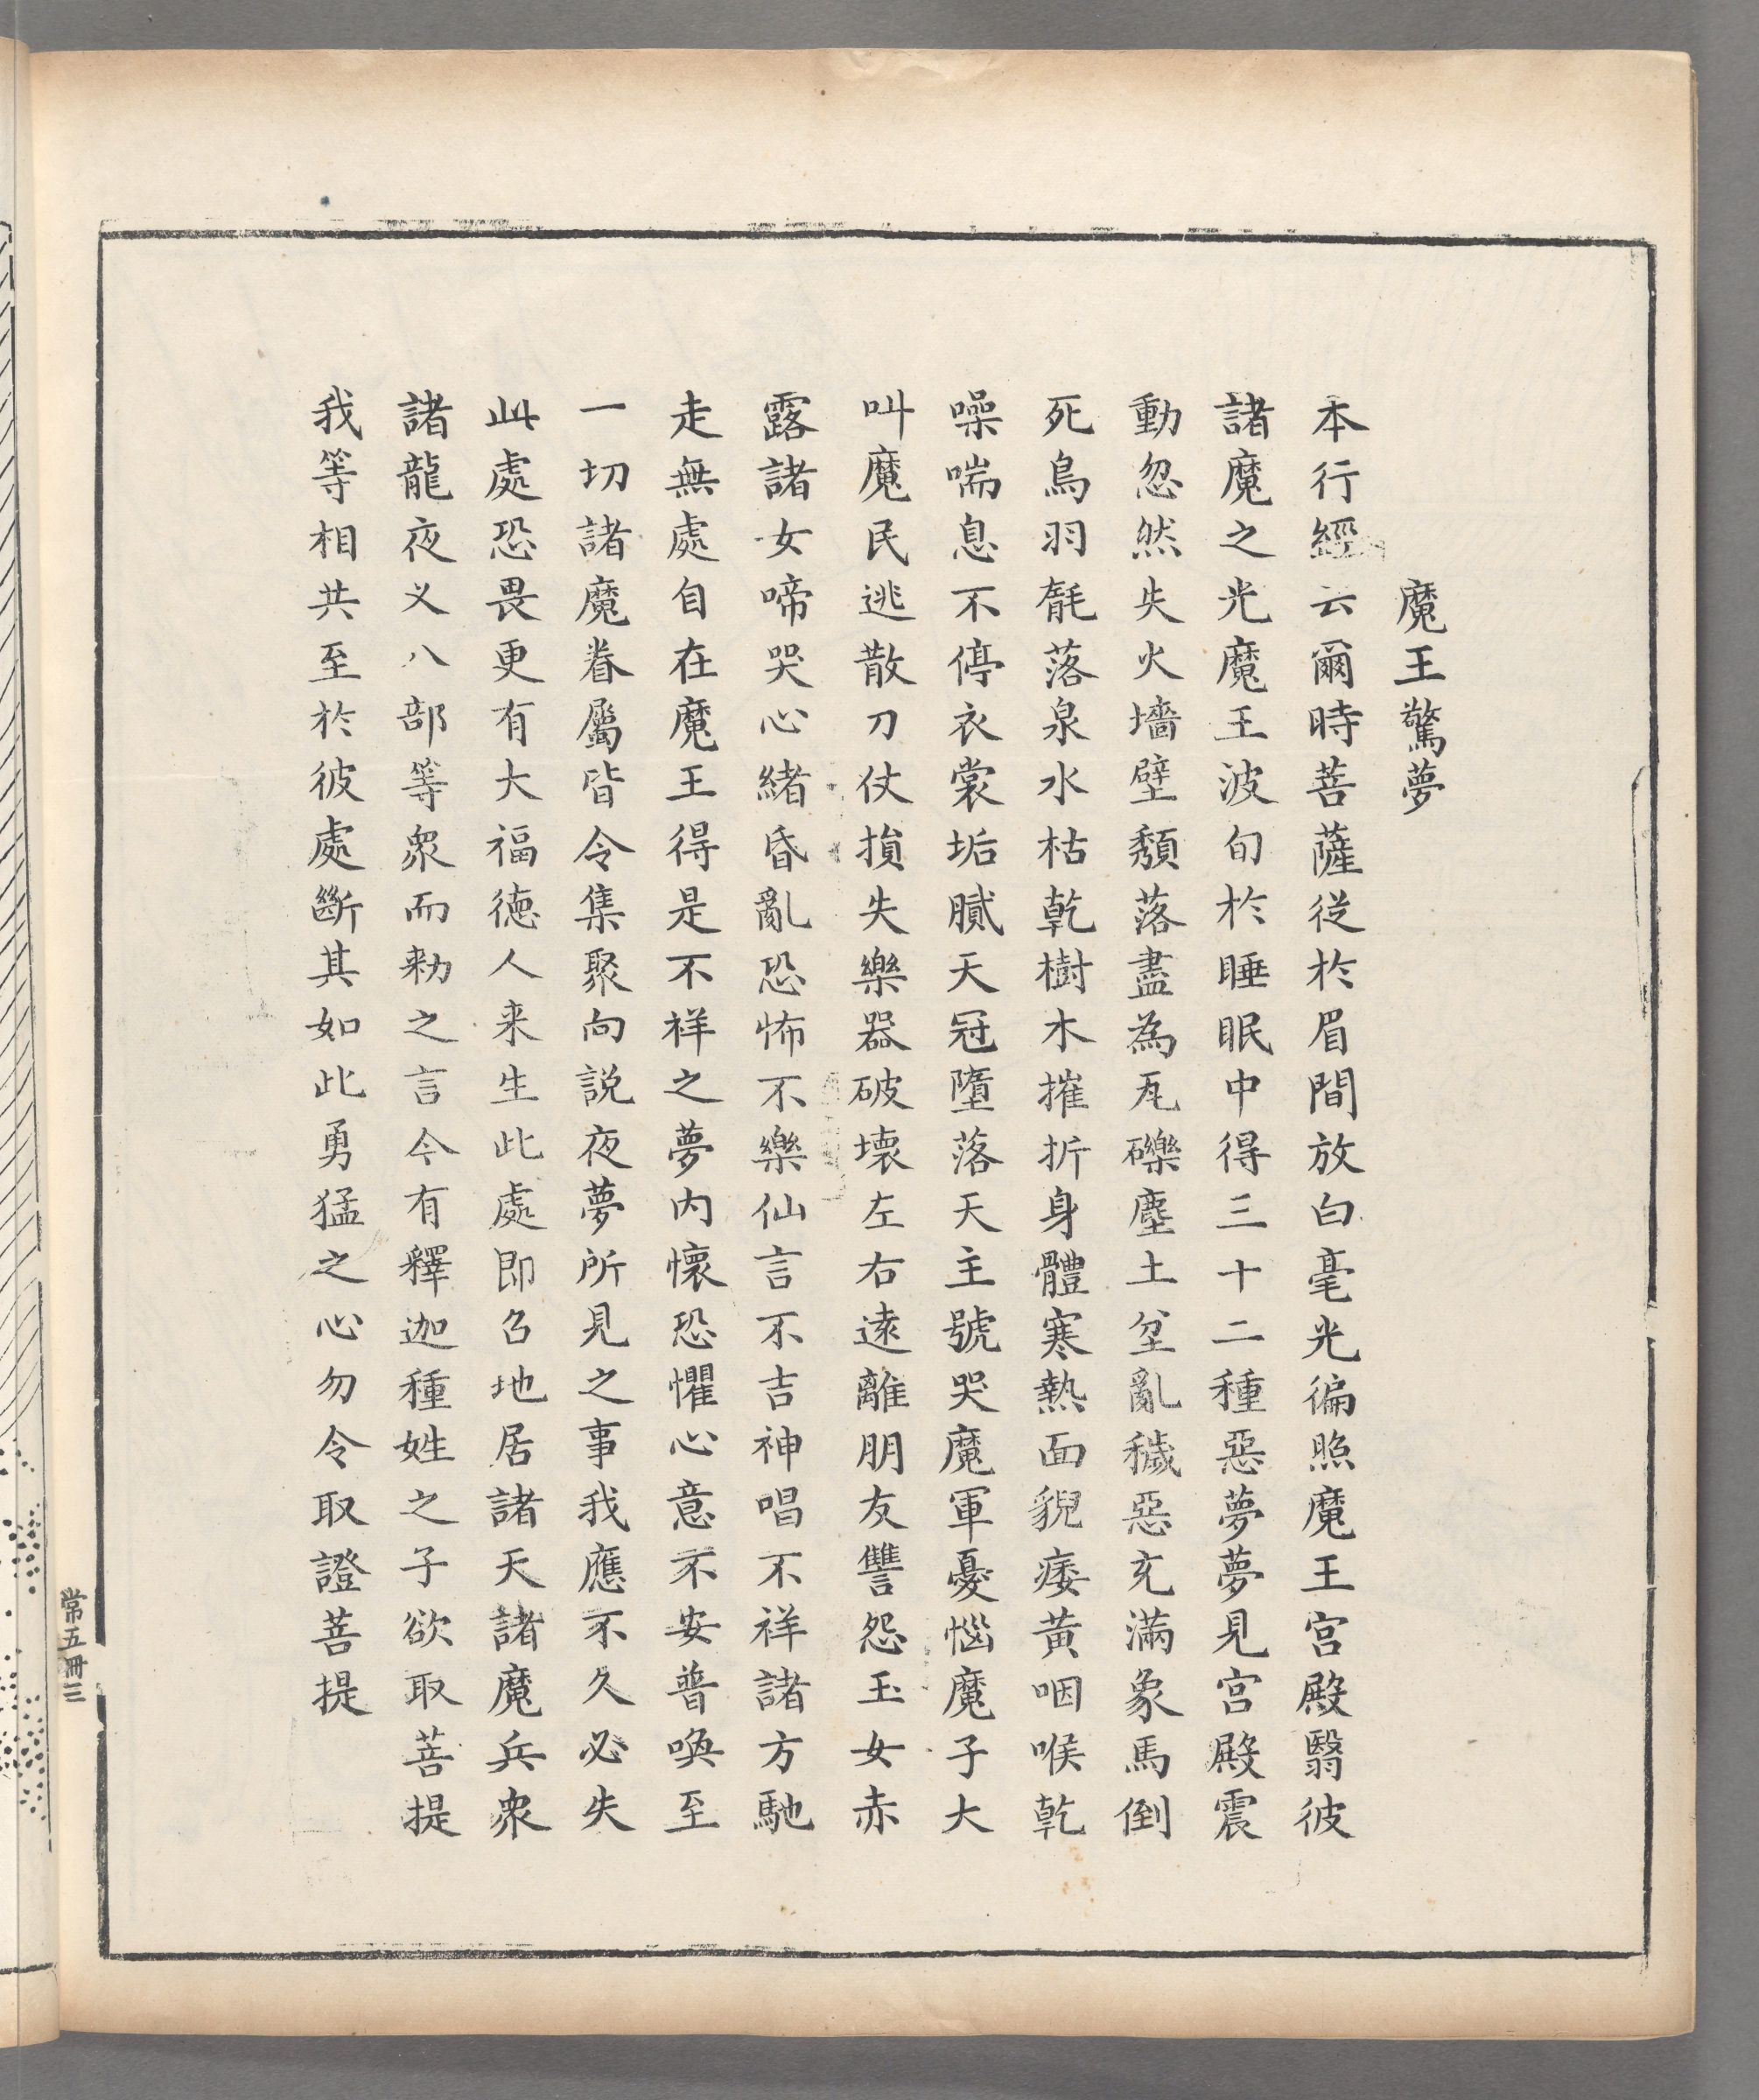 魔王驚夢
本行經云爾時菩薩從於眉間放白毫光徧照魔王宮殿翳彼
諸魔之光魔王波旬於睡眠中得三十二種惡夢夢見宮殿震
動忽然失火墻壁頽落盡為瓦礫塵土坌亂穢惡充滿象馬倒
死鳥羽毻落泉水枯乾樹木摧折身體寒熱面貌痿黃咽喉乾
噪喘息不停衣裳垢膩天冠墮落天主號哭魔軍憂惱魔子大
叫魔民逃散刀仗損失樂器破壞左右遠離朋友讐怨玉女赤
露諸女啼哭心緒昏亂恐怖不樂仙言不吉神唱不祥諸方馳
走無處自在魔王得是不祥之夢內懷恐懼心意不安普喚至
一切諸魔眷屬皆令集聚向說夜夢所見之事我應不久必失
此處恐畏更有大福德人来生此處即召地居諸天諸魔兵衆
諸龍夜义八部等衆而勑之言今有釋迦種姓之子欲取菩提
我等相共至於彼處斷其如此勇猛之心勿令取證菩提
常五冊三